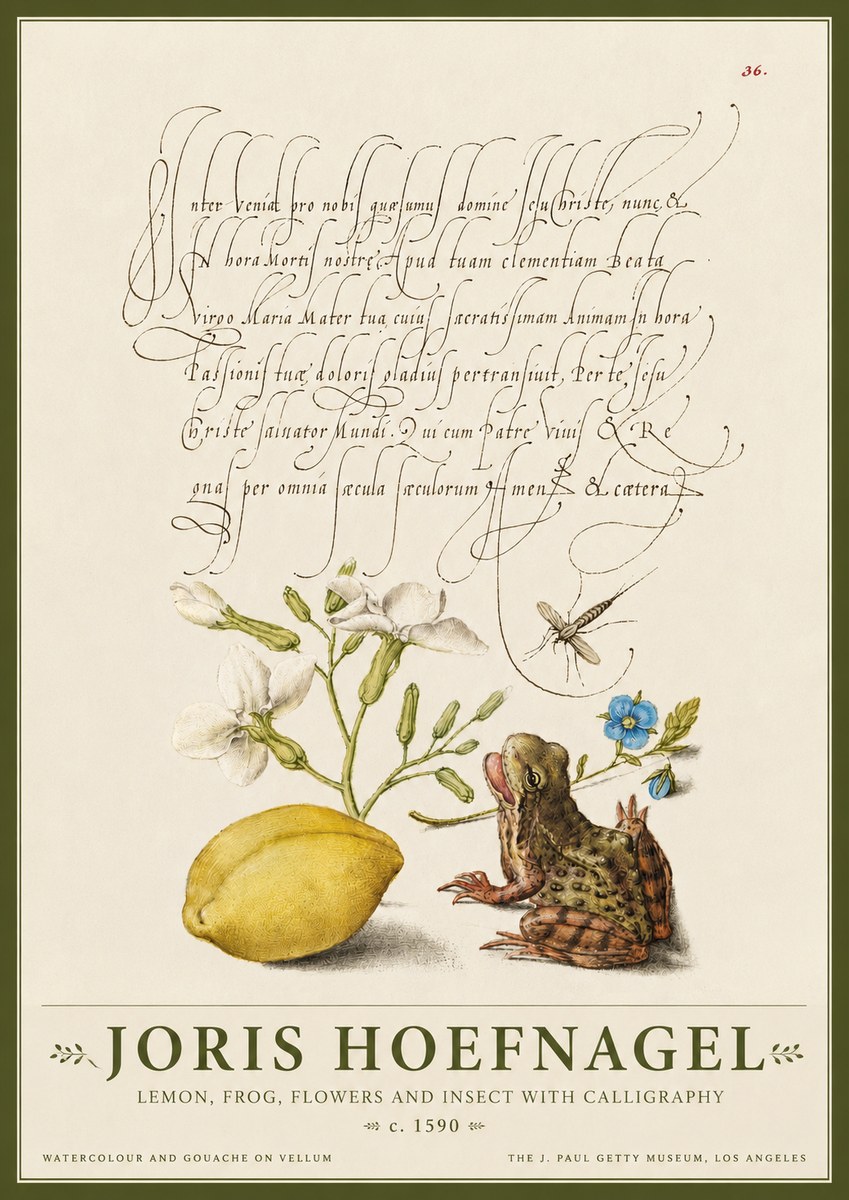 36.
Inter Veniat pro nobis quæsumus domine Jesu Christe, nunc, &
In hora Mortis nostrę, Apud tuam clementiam Beata
virgo Maria Mater tua, cuius sacratissimam Animam In hora
Passionis tuæ, doloris gladius pertransiuit, Per te, Jesu
Christe saluator Mundi. Qui cum Patre Viuis & Re
gnas per omnia sæcula sæculorum Amen & cætera
JORIS HOEFNAGEL
LEMON, FROG, FLOWERS AND INSECT WITH CALLIGRAPHY
c. 1590
WATERCOLOUR AND GOUACHE ON VELLUM
THE J. PAUL GETTY MUSEUM, LOS ANGELES